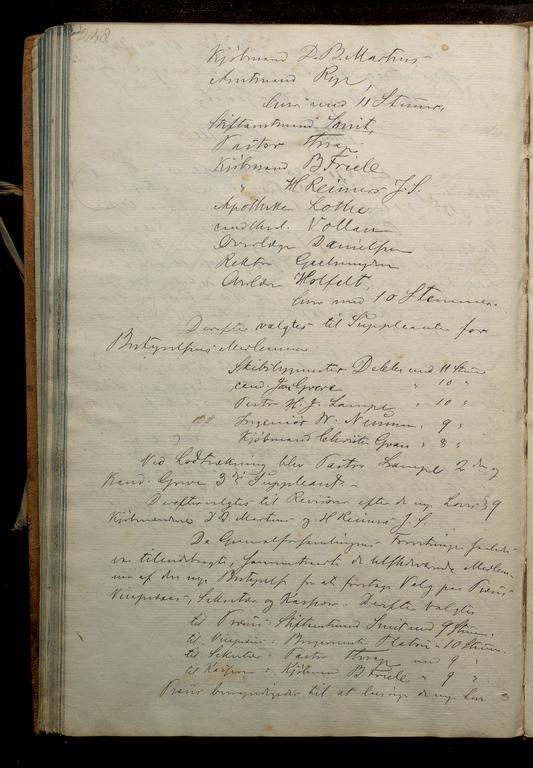 248
Kjøbmand D. B. Martens
Amtmand
hver med 11 Stemmer,
Stiftamtmand Smit,
Pastor
Kjøbmand B Friele
" H Reimers J. S.
Apotheker Lothe
cand. Vollan
Overlæge Danielssen
Rektor
Holfelt,
hver med 10 Stemmer.
Derefter valgtes til Suppleanter for
Bestyrelsens Medlemmer
Skibsbygmester Dekke med 11 Stem
cand. Jan Greve " 10 "
Pastor H. J. Lampe " 10 "
Ingeniør W. " 9 "
Kjøbmand Christie Gran " 8 "
Ved Lodtrækning blev Pastor Lampe 2den og
Kand. Greve 3die Suppleant.
Derefter valgtes til Revisorer efter de nye Love § 9
Kjøbmændene D. B. Martens og H Reimers J. S.
Da Generalforsamlingens Forretninger saaledes
var tilendebragte, de tilstedeværende Medlem-
mer af den nye Bestyrelse for at foretage Valg paa Præses
Vicepræses, Sekretær og Kasserer. Derefter valgtes
til Præses: Stiftamtmand Smit med 9 Stem.
til Vicepræses: Borgermester " 10 Stem.
til Sekretær: Pastor med 9 "
til Kasserer: Kjøbmand B. Friele " 9 "
Præses bemyndigedes til at besørge de nye Love